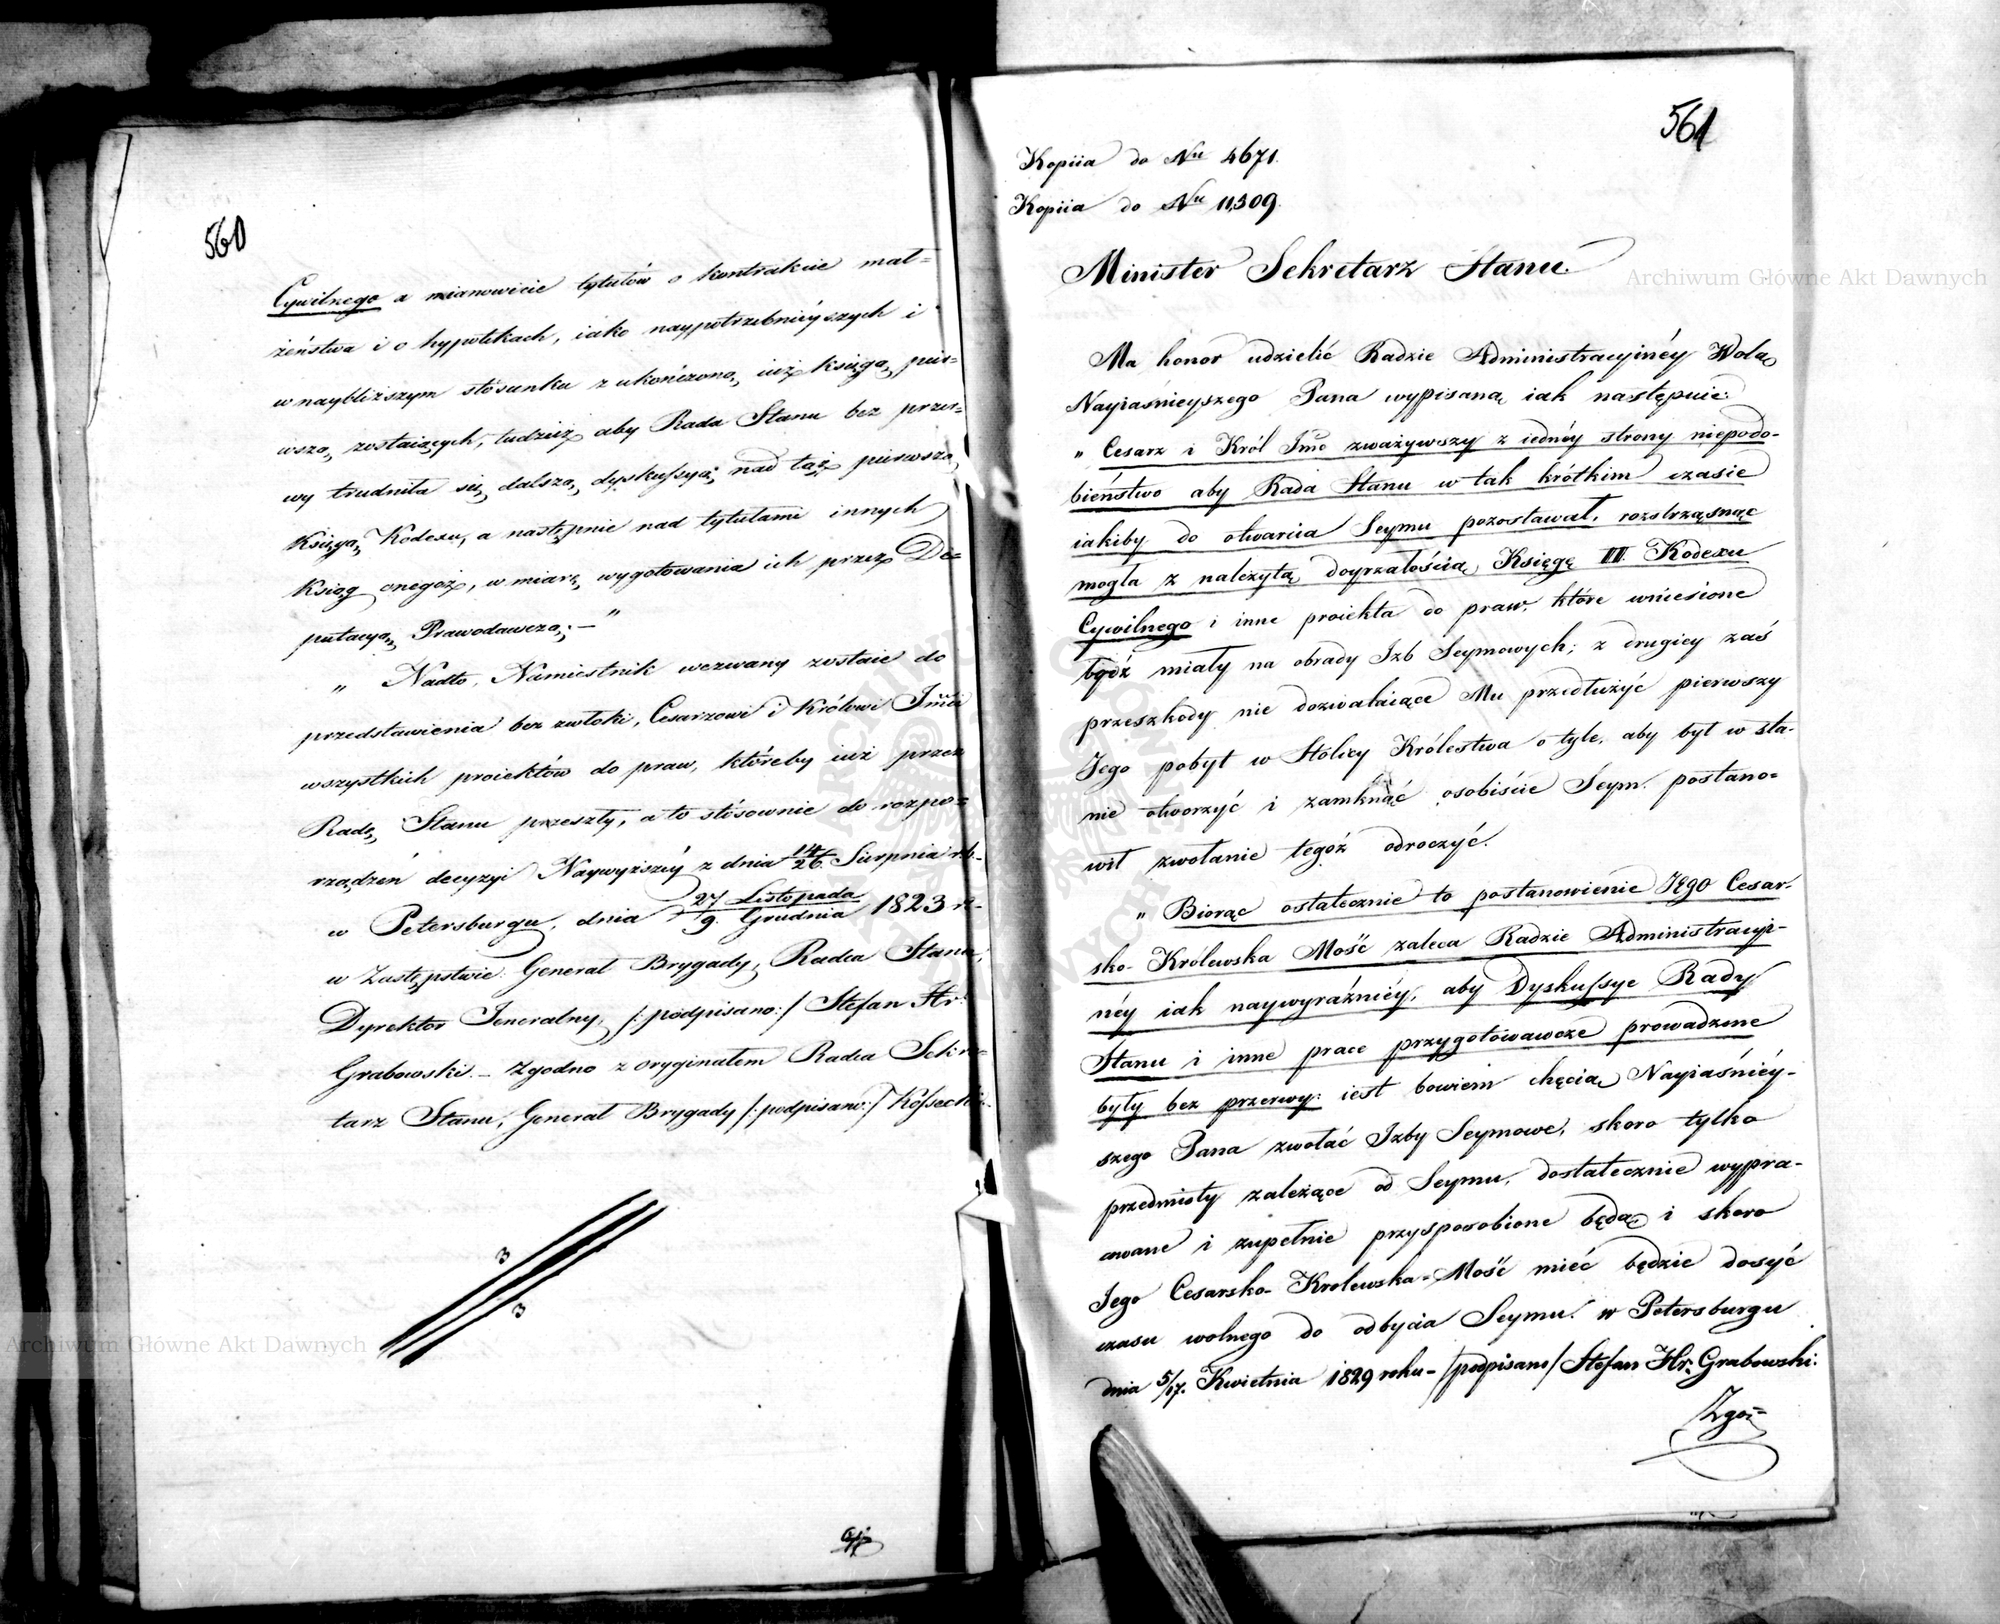 560
Cywilnego a mianowicie tytułów o kontrakcie mał=
żeństwa i o hypotekach, iako naypotrzebnieyszych i
w naybliższym stósunku z ukończoną iuż księgą pier=
wszą zostaiących, tudzież aby Rada Stanu bez przer=
wy trudniła się dalszą dyskussyą nad tąż pierwszą
Księgą Kodexu, a następnie nad tytułami innych
Ksiąg onegoż, w miarę wygotowania ich przez De=
putacyą Prawodawczą; — "
" Nadto, Namiestnik wezwany zostaie do
przedstawienia bez zwłoki, Cesarzowi i Królowi Jmci
wszystkich proiektów do praw, któreby iuż przez
Radę Stanu przeszły, a to stósownie do rozpo=
rządzeń decyzyi Naywyższéy z dnia 14/26 Sierpnia rb.
w Petersburgu, dnia 27 Listopada/9. Grudnia 1823 r.
w Zastępstwie: Generał Brygady, Radca Stanu,
Dyrektor Jeneralny, /:podpisano:/ Stefan Hr:
Grabowski. — Zgodno z oryginałem Radca Sekre=
tarz Stanu, Generał Brygady /:podpisano:/ Kossecki.
3
3
561
Kopiia do Nru 4671.
Kopiia do Nru 11,309.
Minister Sekretarz Stanu.
Archiwum Główne Akt Dawnych
Ma honor udzielić Radzie Administracyinéy Wolą
Nayiaśnieyszego Pana wypisaną iak następuie:
" Cesarz i Król Jmć zważywszy z iednéy strony niepodo-
bieństwo aby Rada Stanu w tak krótkim czasie
iakiby do otwarcia Seymu pozostawał, roztrząsnąć
mogła z należytą doyrzałością Księgę III. Kodexu
Cywilnego i inne proiekta do praw, które wniesione
bydź miały na obrady Izb Seymowych; z drugiey zaś
przeszkody nie dozwalaiące Mu przedłużyć pierwszy
Jego pobyt w Stolicy Królestwa o tyle, aby był w sta-
nie otworzyć i zamknąć osobiście Seym, postano=
wił zwołanie tegóż odroczyć.
" Biorąc ostatecznie to postanowienie JEgo Cesar-
sko-Królewska Mość zaleca Radzie Administracyi-
néy iak naywyraźniéy, aby Dyskussye Rady
Stanu i inne prace przygotowawcze prowadzone
były bez przerwy: iest bowiem chęcią Nayiaśniéy-
szego Pana zwołać Izby Seymowe, skoro tylko
przedmioty zależące od Seymu, dostatecznie wypra-
cowane i zupełnie przysposobione będą i skoro
Jego Cesarsko-Krolewska-Mość mieć będzie dosyć
czasu wolnego do odbycia Seymu. w Petersburgu
dnia 5/17. Kwietnia 1829 roku - /podpisano/ Stefan Hr. Grabowski.
Archiwum Główne Akt Dawnych